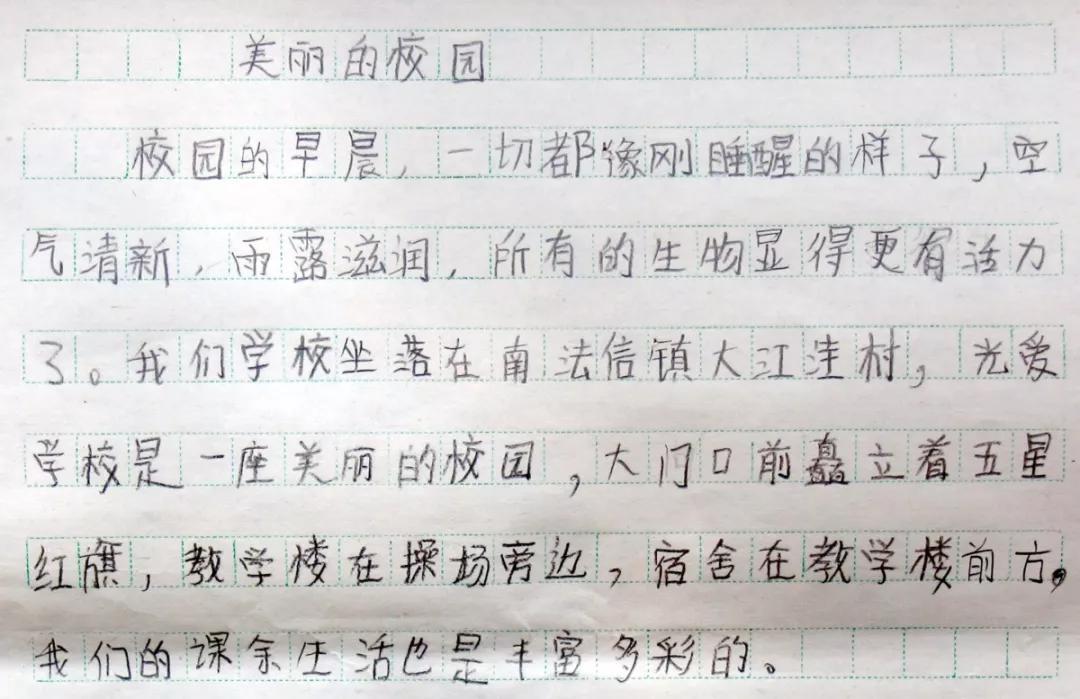 美丽的校园
校园的早晨,一切都像刚睡醒的样子,空
气清新,雨露滋润,所有的生物显得更有活力
了。我们学校坐落在南法信镇大江洼村,光爱
学校是一座美丽的校园,大门口前矗立着五星
红旗,教学楼在操场旁边,宿舍在教学楼前方。
我们的课余生活也是丰富多彩的。